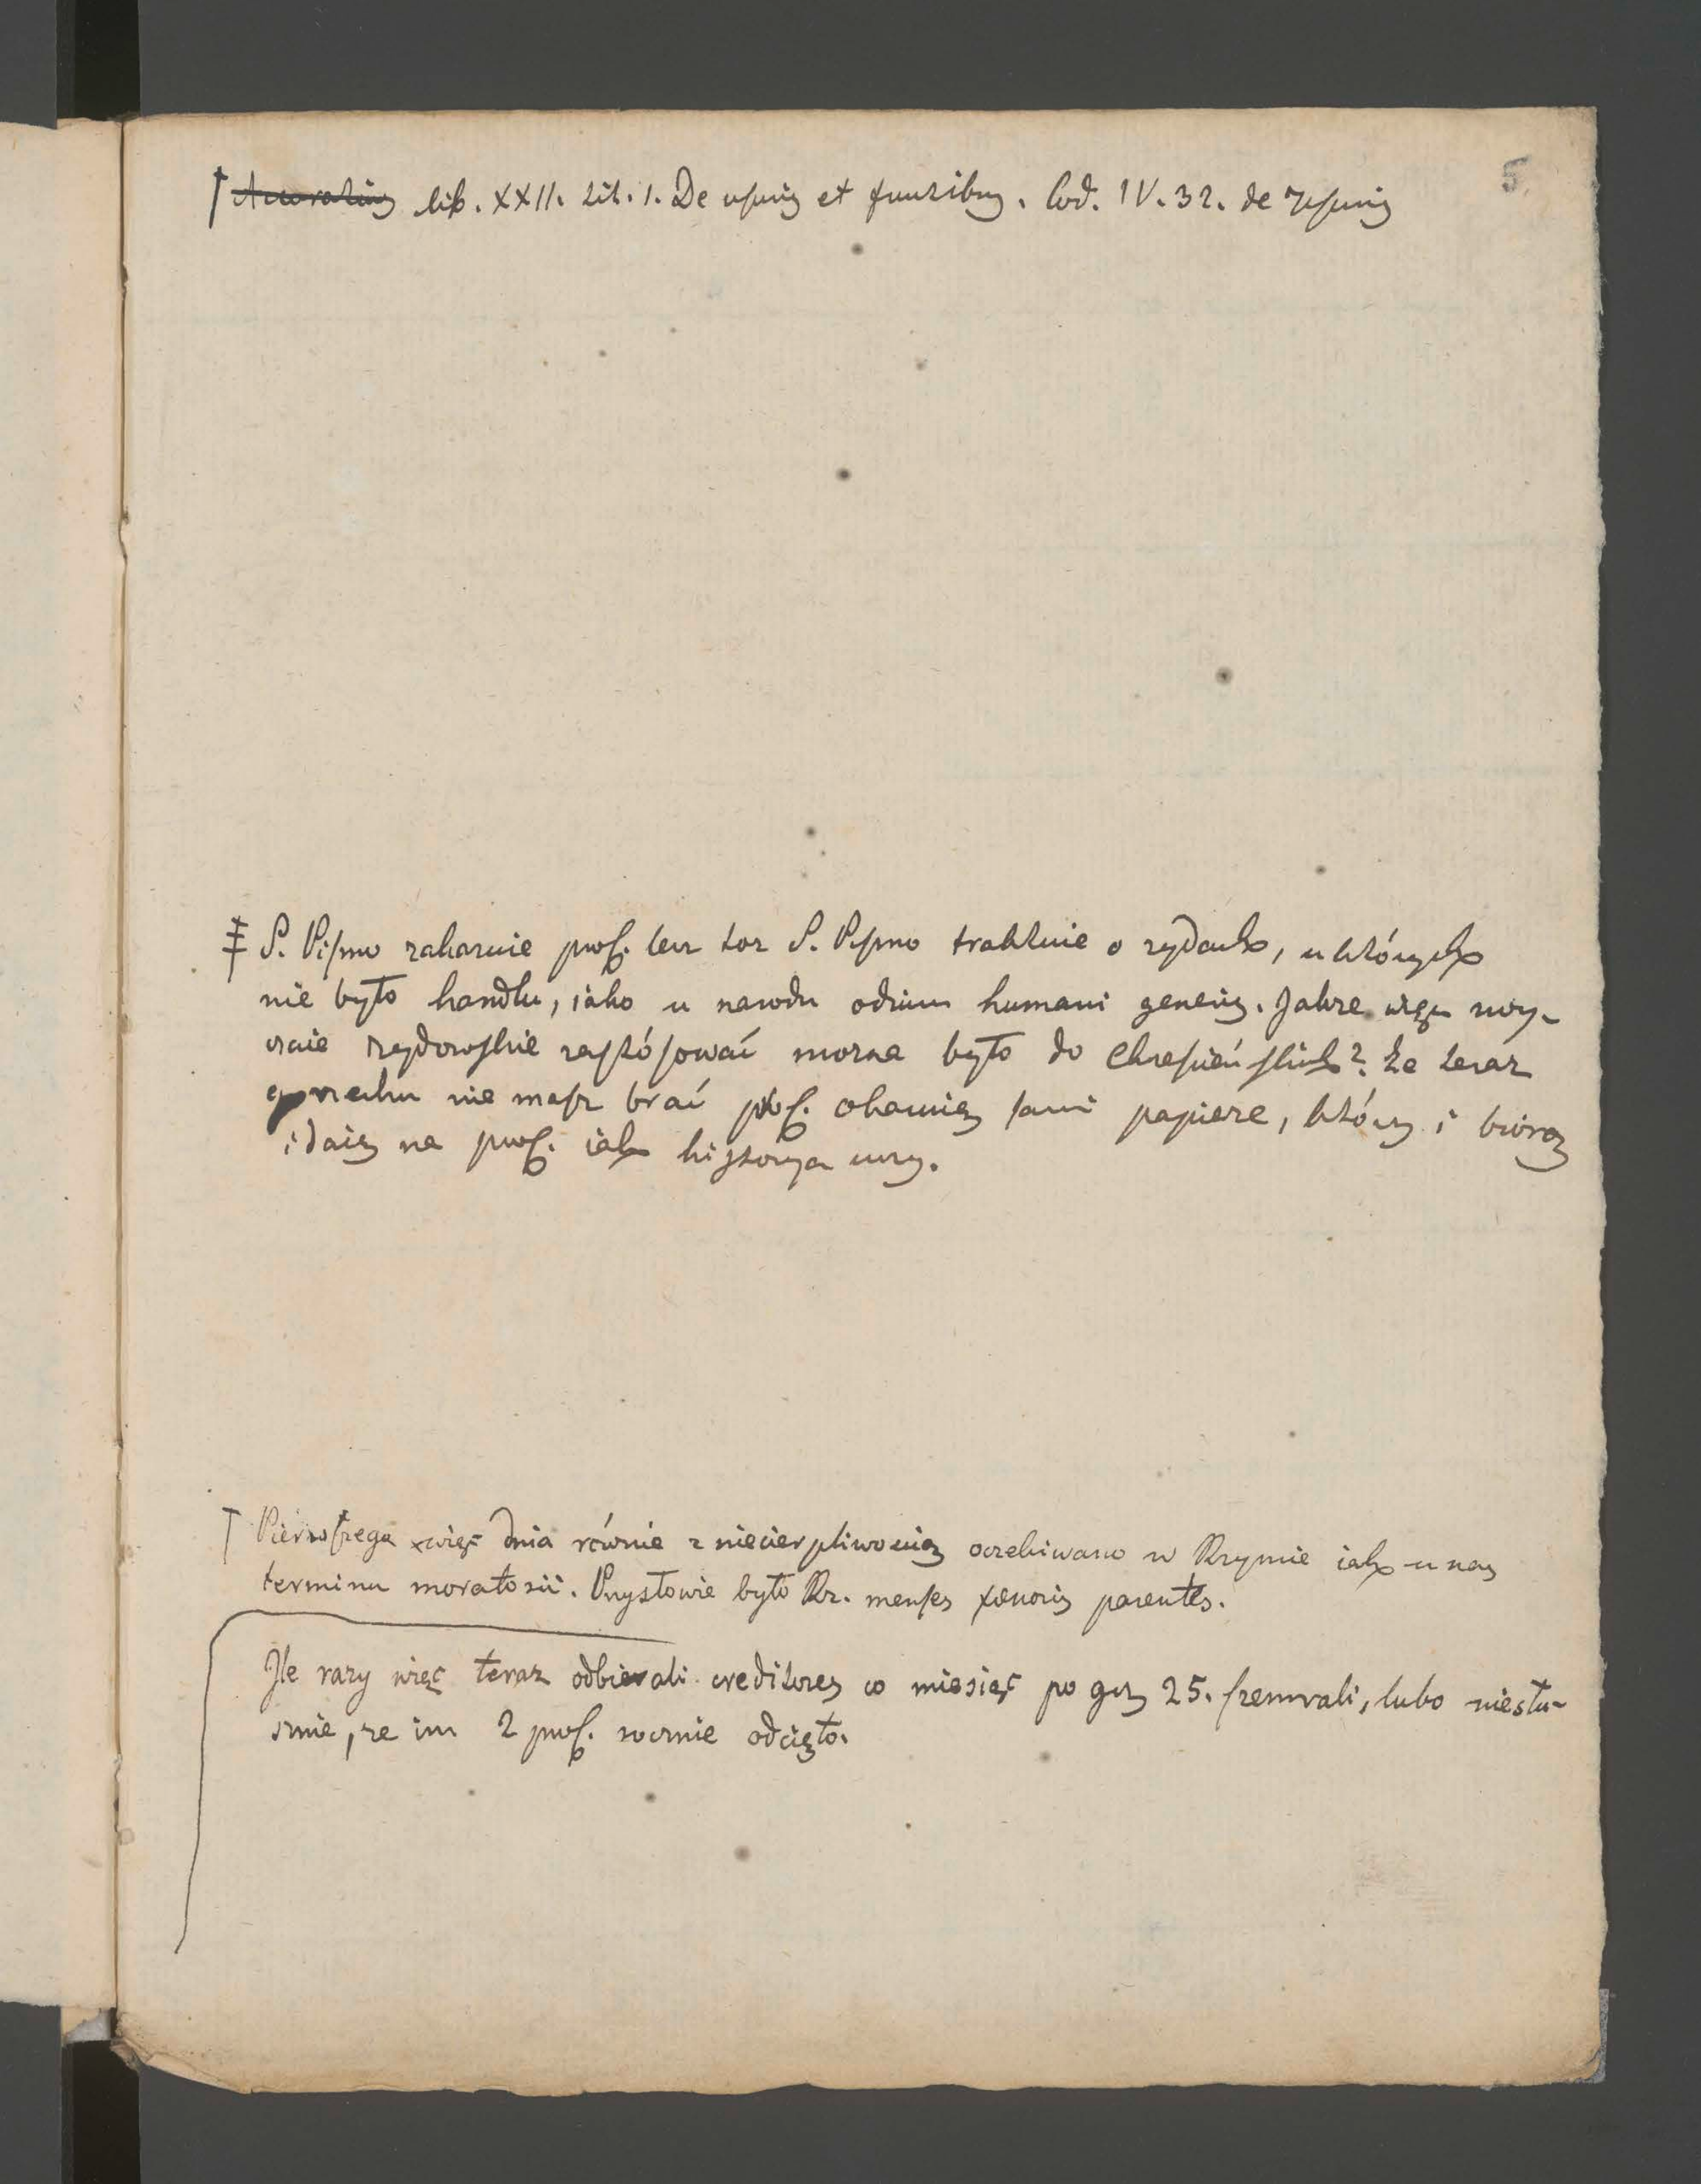 5.
† lib. XXII. tit. 1. De usuris et fructibus. Cod. IV. 32. de Usuris
‡ S. Pismo zakazuie prof. lecz toż S. Pismo traktuie o żydach, u których
nie było handlu, iako u narodu odium humani generis. Jakże więc zwy-
czaie żydowskie zastósować można było do chrześciańskich? Że teraz
grzechu nie masz brać prof. obawią sami papieże, którzy i biorą
i daią na prof. iak historya uczy.
† Pierwszego więc dnia równie z niecierpliwością oczekiwano w Rzymie iak u nas
terminu moratorii. Przysłowie było Rz. menses fœnoris parentes.
Ile razy więc teraz odbierali creditores co miesiąc po 25. szemrali, lubo niesłu-
sznie, że im 2 prof. rocznie odcięto.